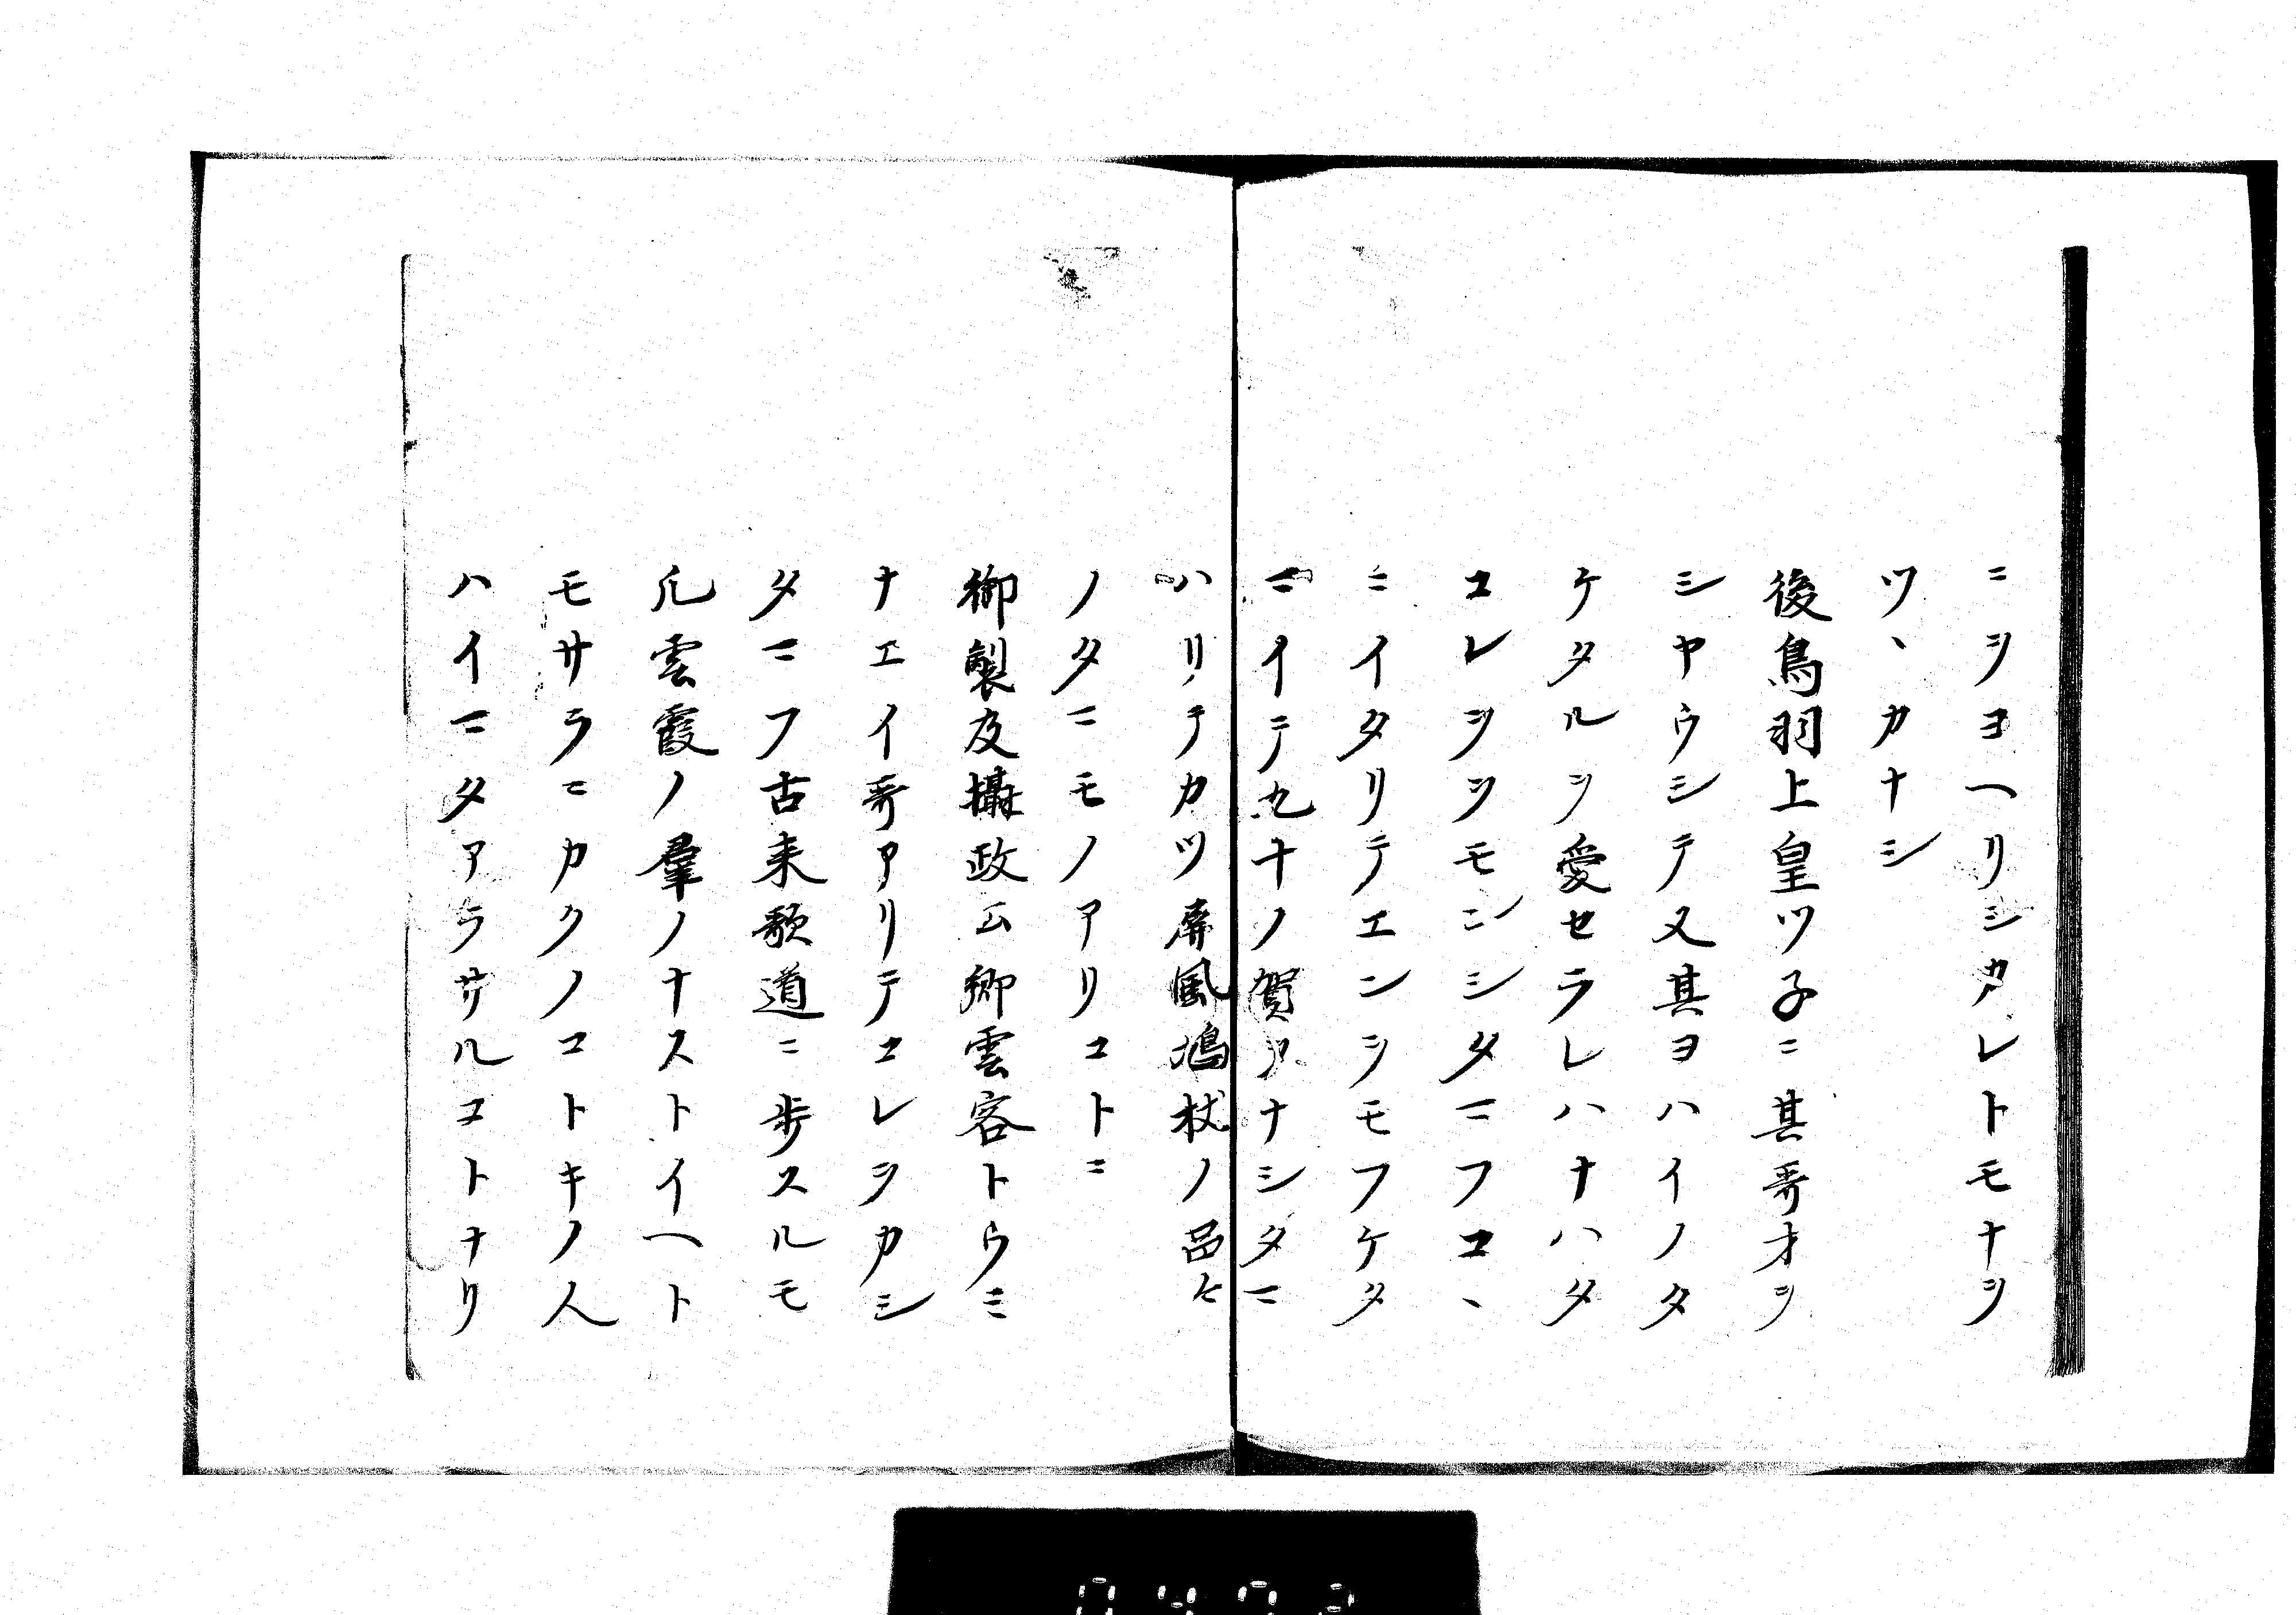 ニヲヨヘリシカレトモナヲ
ツヽカナシ
後鳥羽上皇ツ子ニ其哥才ヲ
シヤウシテ又其ヨハイノタ
ケタルヲ愛セラレハナハタ
コレヲツモンシタマフコヽ
ニイタリテエンヲモフケタ
マイテ九十ノ賀ヲナシタマ
ハリテカツ屏風鳩杖ノ品々
ノタマモノアリコトニ
御製及攝政公卿雲客トウミ
ナエイ哥アリテコレヲカシ
タマフ古来歌道ニ歩スルモ
凡雲霞ノ羣ノナストイヘト
モサラニカクノコトキノ人
ハイマタアラサルコトナリ